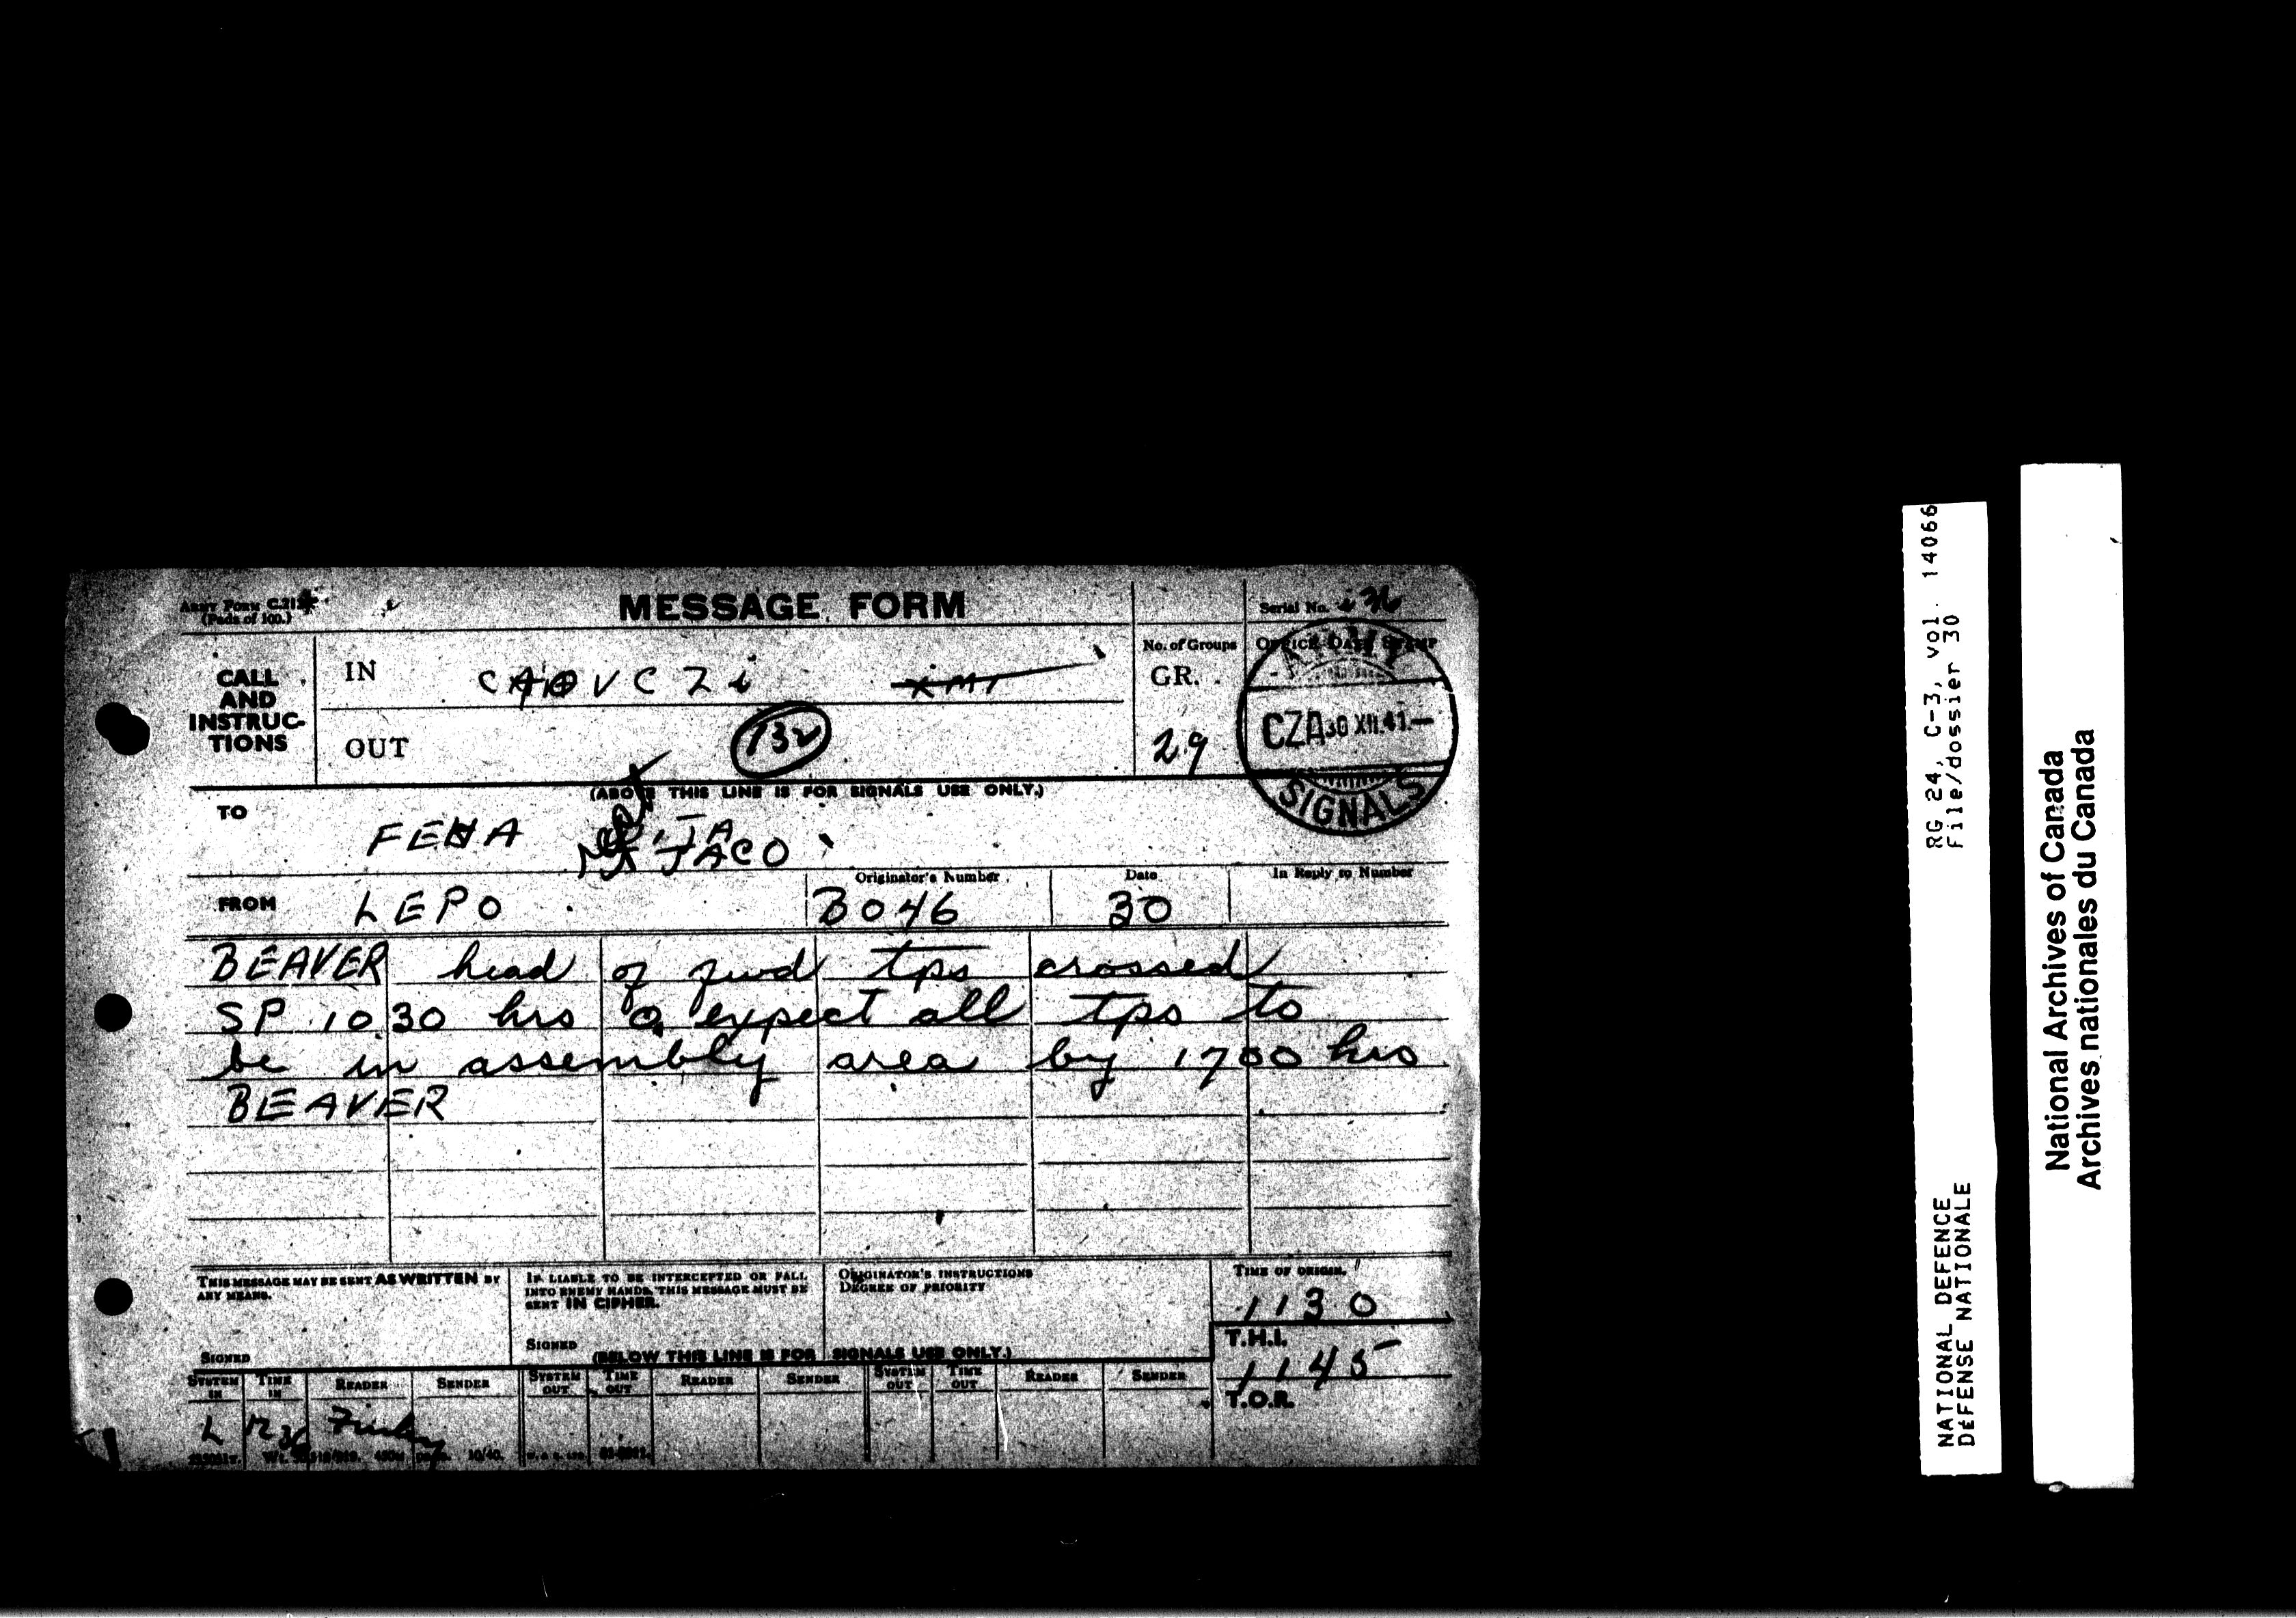 ARMY FORM C.212
(Pads of 100.)
MESSAGE FORM
Serial No.
CALL AND INSTRUC-TIONS
IN
V C Z
No. of Groups
GR.
29
OFFICE DATE STAMP
ARMY
CZA 30 XII.41.—
SIGNALS
OUT
132
(ABOVE THIS LINE IS FOR SIGNALS USE ONLY.)
TO
FEHA JACO
FROM
LEPO
Originator's Number
BO46
Date
30
In Reply to Number
BEAVER head of fwd tps crossed
SP 1030 hrs expect all tps to
be in assembly area by 1700 hrs
BEAVER
THIS MESSAGE MAY BE SENT AS WRITTEN BY
ANY MEANS.
SIGNED
IF LIABLE TO BE INTERCEPTED OR FALL
INTO ENEMY HANDS, THIS MESSAGE MUST BE
SENT IN CIPHER.
SIGNED
ORIGINATOR'S INSTRUCTIONS
DEGREE OF PRIORITY
TIME OF ORIGIN.
1130
T.H.I.
1145
T.O.R.
(BELOW THIS LINE IS FOR SIGNALS USE ONLY.)
SYSTEM IN TIME IN READER SENDER SYSTEM OUT TIME OUT READER SENDER SYSTEM OUT TIME OUT READER SENDER
L
10/40.
RG 24, C-3, vol. 14066
File/dossier 30
NATIONAL DEFENCE
DÉFENSE NATIONALE
National Archives of Canada
Archives nationales du Canada